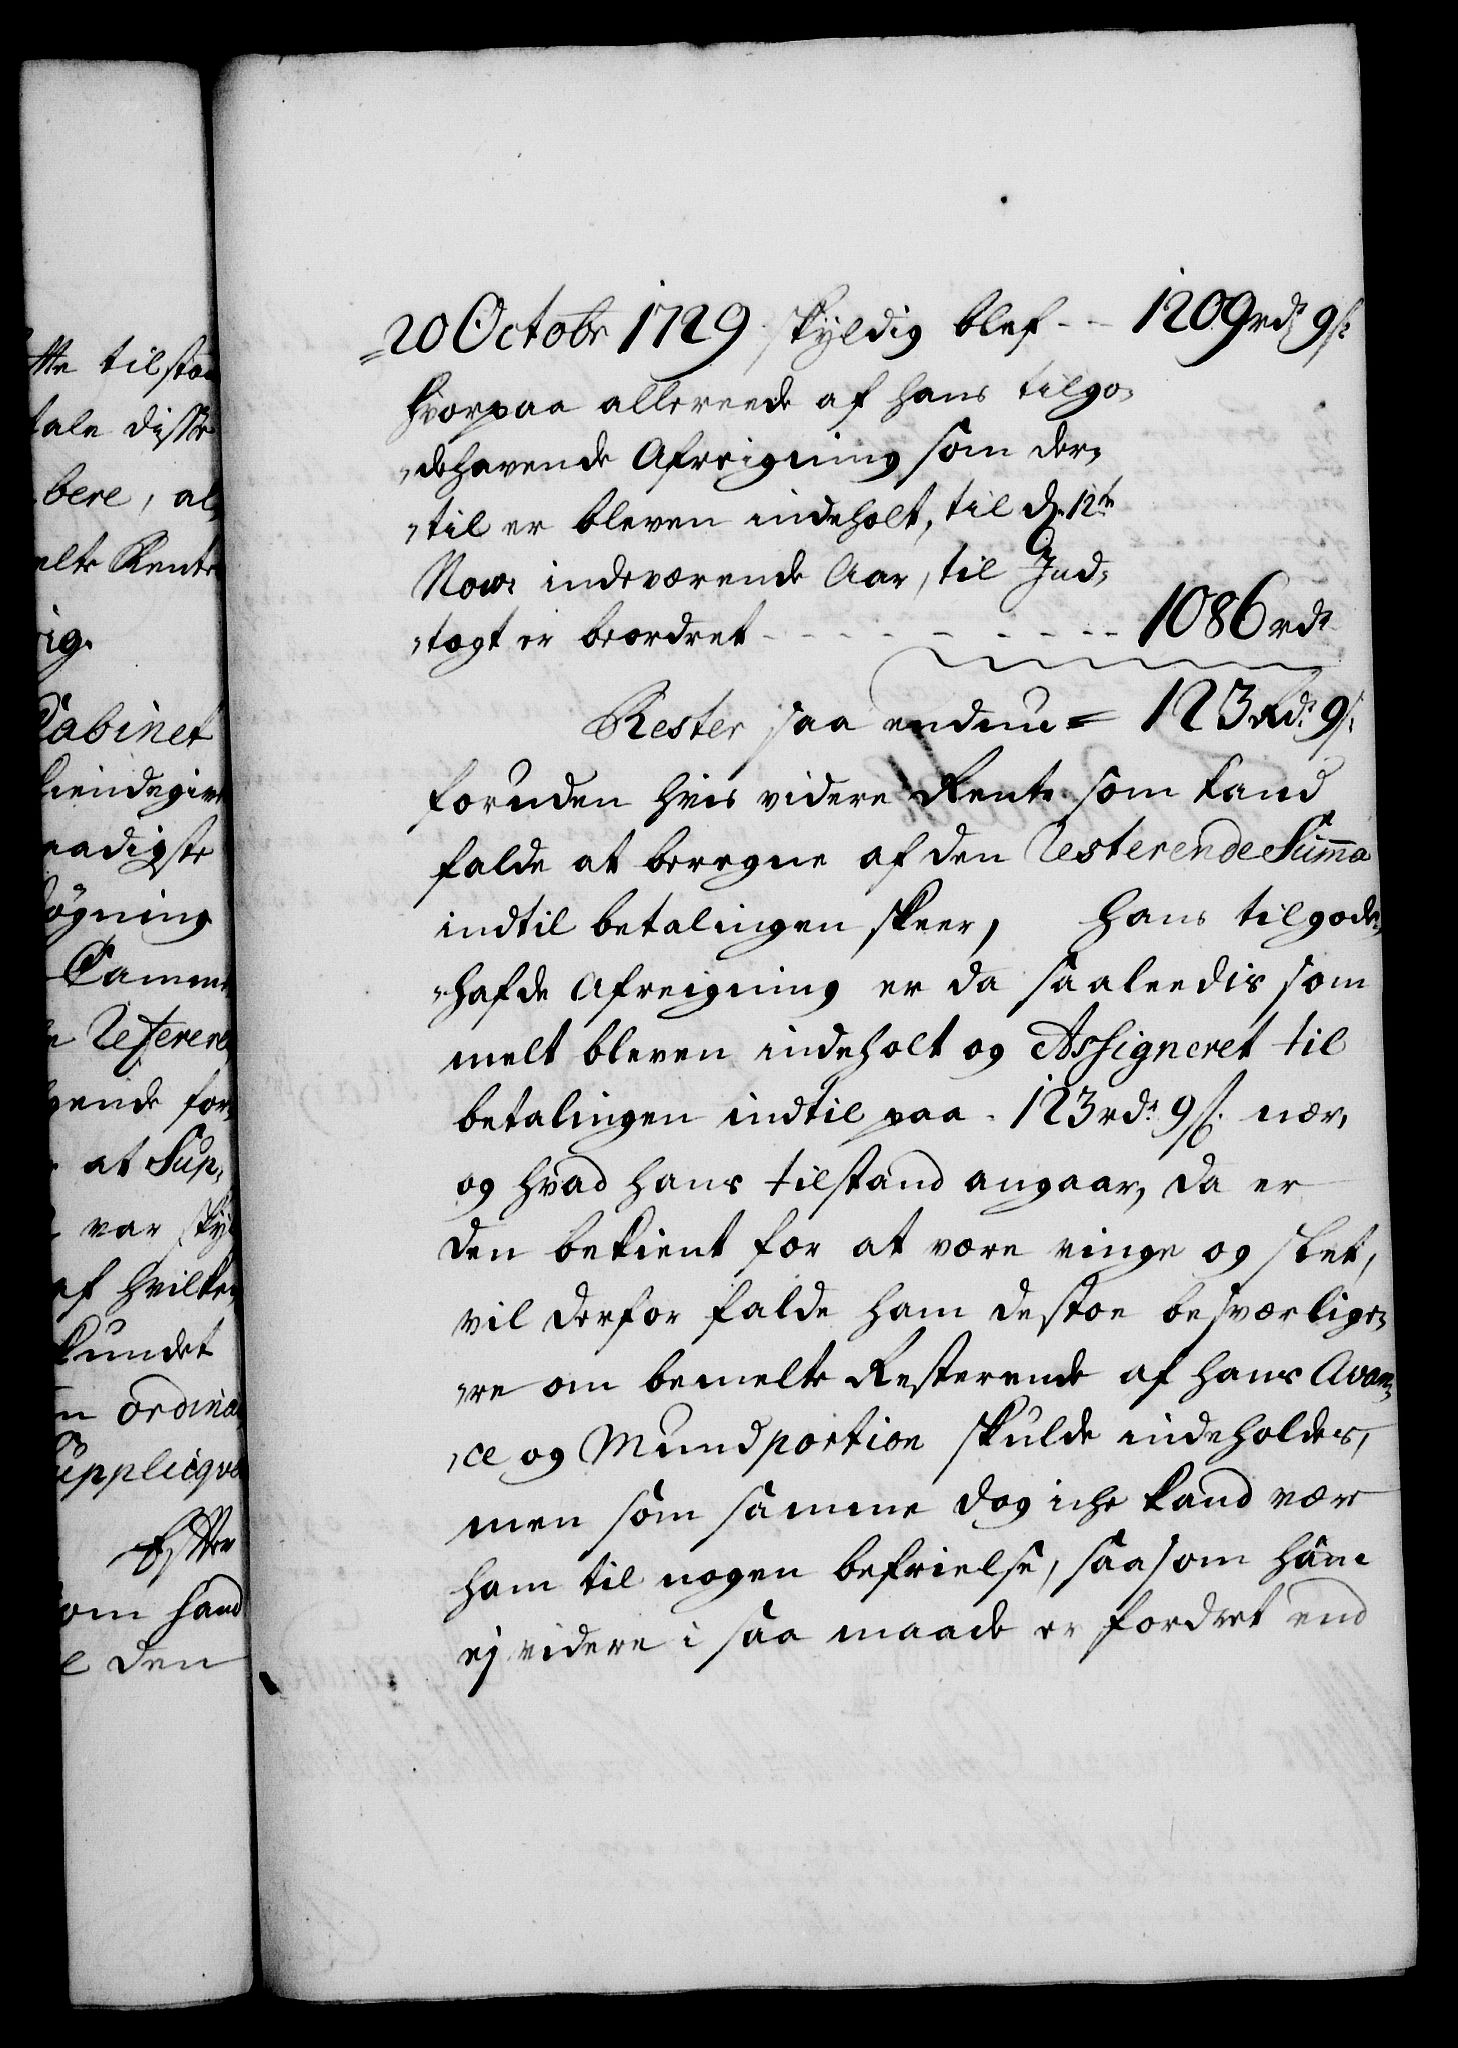 tte tilstaa
tale disse
bere, al,
elte Rente
rig.
Cabinet
kiendegive
naadigste
søgning
Camme
e Referere
gende for,
at Sup,
var sky
af hvilke
kundet
n ordina
Suppliqve
Efter
om hand
e den
20 Octobr 1729 skyldig blef -- 1209 rd: 9 s:
hvorpaa allereede af hans tilgo,
,dehavende Afreigning som der,
,til er bleven indeholt, til d. 12te
Nov: indeværende Aar, til Ind,
,togt er beordret - - - - - - - 1086 rd:
Rester saa endnu = 123 Rd: 9 s:
foruden hvis videre Rente som kand
falde at beregne af den Resterende Summa
indtil betalingen skeer, Hans tilgode,
,hafde Afreigning er da saaleedis som
melt bleven indeholt og Assigneret til
betalingen indtil paa 123 rd: 9 s: nær,
og hvad hans tilstand angaar, da er
den bekient for at være ringe og slet,
vil derfor falde ham destoe besværlige,
,re om bemelte Resterende af hans Avan,
,ce og Mundportion skulde indeholdes,
men som samme dog iche kand være
ham til nogen befrielse, saasom hañe
ej videre i saa maade er fordret end